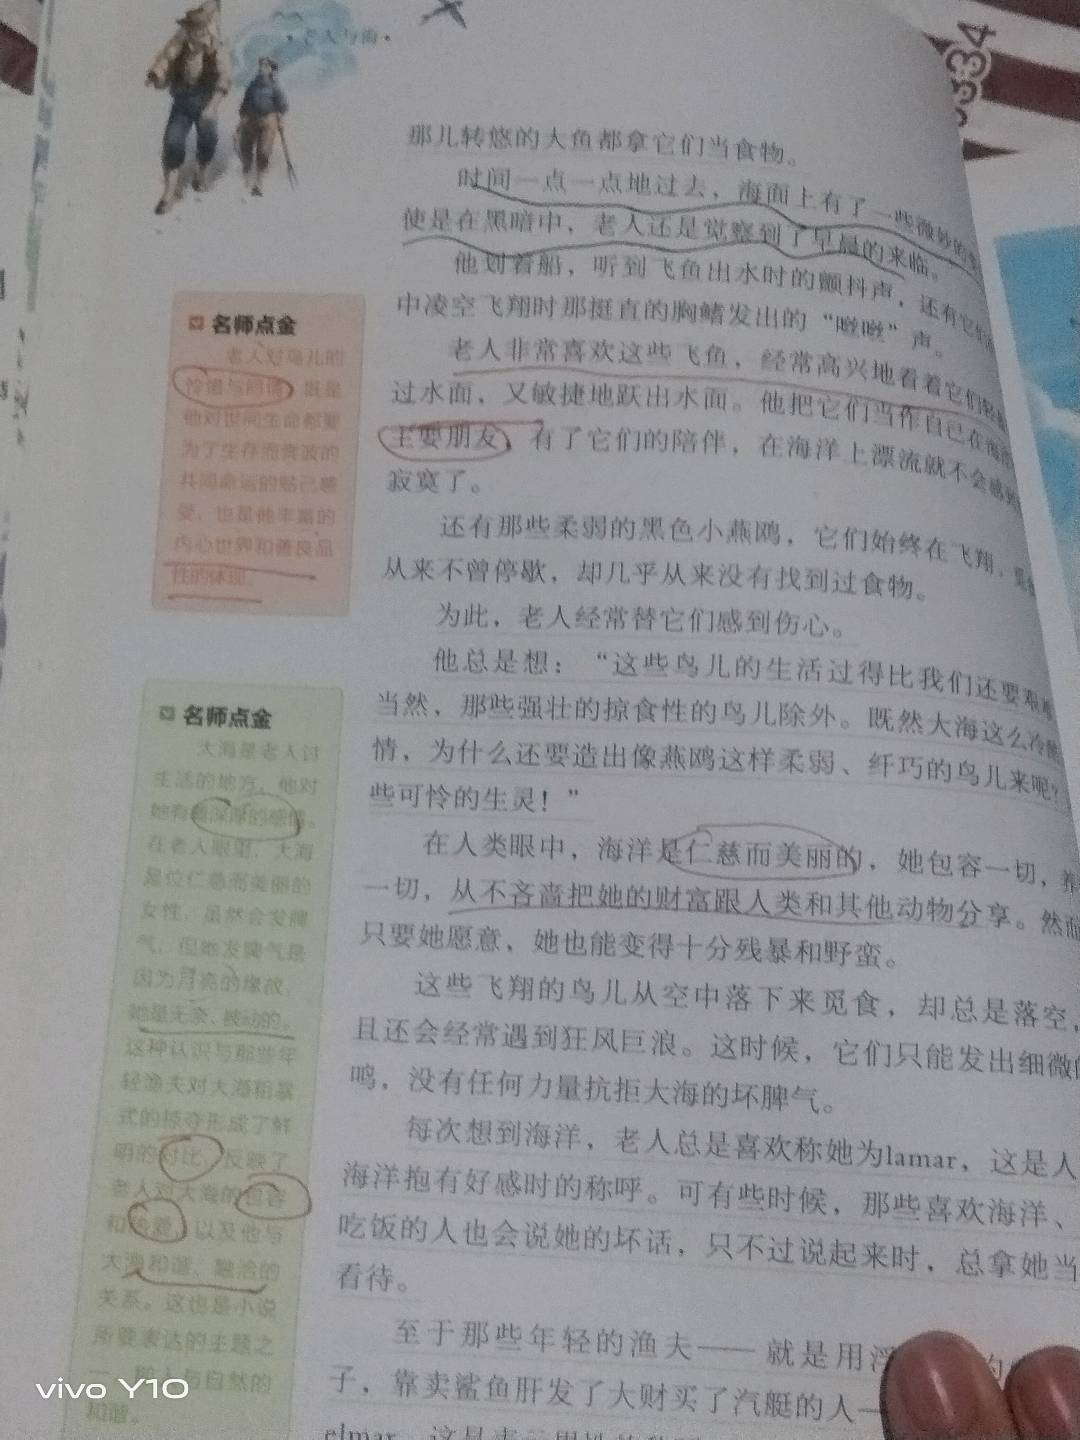 老人与海
那儿转悠的大鱼都拿它们当食物。
时间一点一点地过去，海面上有了一些微妙的
使是在黑暗中，老人还是觉察到了早晨的来临。
他划着船，听到飞鱼出水时的颤抖声，还有它们
中凌空飞翔时那挺直的胸鳍发出的“咝咝”声。
老人非常喜欢这些飞鱼，经常高兴地看着它们
过水面，又敏捷地跃出水面。他把它们当作自己在海
主要朋友，有了它们的陪伴，在海洋上漂流就不会感
寂寞了。
还有那些柔弱的黑色小燕鸥，它们始终在飞翔、
从来不曾停歇，却几乎从来没有找到过食物。
为此，老人经常替它们感到伤心。
他总是想：“这些鸟儿的生活过得比我们还要艰
当然，那些强壮的掠食性的鸟儿除外。既然大海这么冷
情，为什么还要造出像燕鸥这样柔弱、纤巧的鸟儿来呢？
些可怜的生灵！”
在人类眼中，海洋是仁慈而美丽的，她包容一切，
一切，从不吝啬把她的财富跟人类和其他动物分享。然而
只要她愿意，她也能变得十分残暴和野蛮。
这些飞翔的鸟儿从空中落下来觅食，却总是落空，
且还会经常遇到狂风巨浪。这时候，它们只能发出细微
鸣，没有任何力量抗拒大海的坏脾气。
每次想到海洋，老人总是喜欢称她为lamar，这是人
海洋抱有好感时的称呼。可有些时候，那些喜欢海洋、
吃饭的人也会说她的坏话，只不过说起来时，总拿她当
看待。
至于那些年轻的渔夫——就是用浮
子，靠卖鲨鱼肝发了大财买了汽艇的人—
elmar，这是表
名师点金
老人对鸟儿的
怜惜与同情，既是
他对世间生命都要
为了生存而奔波的
共同命运的贴己感
受，也是他丰富的
内心世界和善良品
性的体现。
名师点金
大海是老人讨
生活的地方，他对
她有着深厚的感情。
在老人眼里，大海
是位仁慈而美丽的
女性，虽然会发脾
气，但她发脾气是
因为月亮的缘故，
她是无奈、被动的。
这种认识与那些年
轻渔夫对大海粗暴
式的掠夺形成了鲜
明的对比，反映了
老人对大海的包容
和热爱，以及他与
大海和谐、融洽的
关系。这也是小说
所要表达的主题之
一，即人与自然的
和谐。
vivo Y10